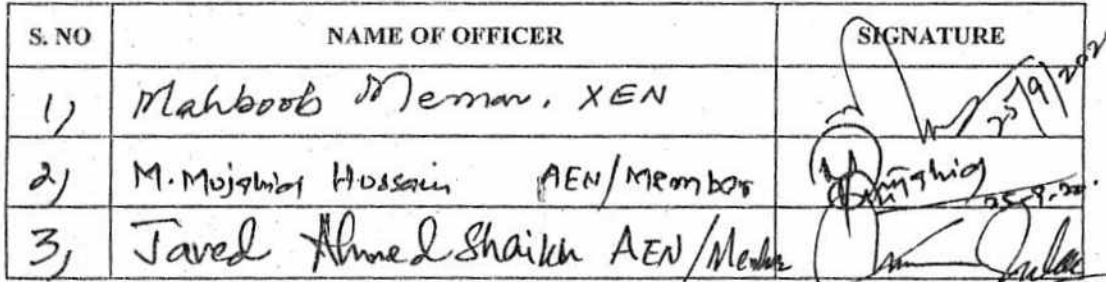 S. NO NAME OF OFFICER SIGNATURE
1) Mahboob Memon. XEN 25/9/202
2) M. Mujahid Hussain AEN/Member Mujahid 25-9-20.
3) Javed Ahmed Shaikh AEN/Member